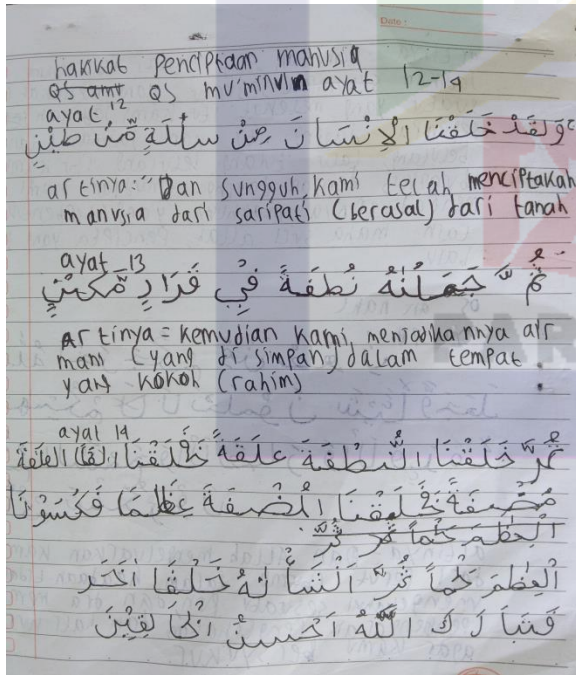 Date :
hakikat Penciptaan manusia
QS amt QS mu'minun ayat 12-14
ayat 12
وَلَقَدْ خَلَقْنَا الْاِنْسَانَ مِنْ سُلٰلَةٍ مِّنْ طِيْنٍ
artinya: "Dan sungguh, kami telah menciptakah
manusia dari saripati (berasal) dari tanah
ayat 13
ثُمَّ جَعَلْنٰهُ نُطْفَةً فِيْ قَرَارٍ مَّكِيْنٍ
Artinya = kemudian kami, menjadikannya air
mani (yang di simpan) dalam tempat
yang kokoh (rahim)
ayat 14
ثُمَّ خَلَقْنَا النُّطْفَةَ عَلَقَةً فَخَلَقْنَا العلقة
مُضْغَةً فَخَلَقْنَا الْمُضْغَةَ عِظٰمًا فَكَسَوْنَا
الْعِظٰمَ لَحْمًا ثُمَّ
الْعِظٰمَ لَحْمًا ثُمَّ اَنْشَأْنٰهُ خَلْقًا اٰخَرَ
فَتَبَارَكَ اللّٰهُ اَحْسَنُ الْخَالِقِيْنَ